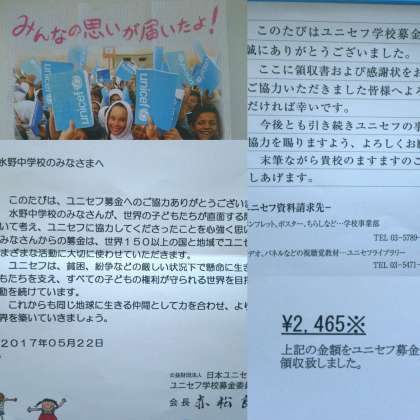 みんなの思いが届いたよ!
unicef
unicef
unicef
水野中学校のみなさまへ
このたびは、ユニセフ募金へのご協力ありがとうござい
水野中学校のみなさんが、世界の子どもたちが直面する
いて考え、ユニセフに協力してくださったことを心強く思い
みなさんからの募金は、世界150以上の国と地域でユニセ
まざまな活動に大切に使わせていただきます。
ユニセフは、貧困、紛争などの厳しい状況下で懸命に生き
もたちを支え、すべての子どもの権利が守られる世界を目指
動を続けています。
これからも同じ地球に生きる仲間として力を合わせ、より
界を築いていきましょう。
2017年05月22日
公益財団法人 日本ユニセ
ユニセフ学校募金委員
会長 赤松良
このたびはユニセフ学校募金
誠にありがとうございました。
ここに領収書および感謝状をお
ご協力いただきました皆様へよろ
だければ幸いです。
今後とも引き続きユニセフの事
協力を賜りますよう、よろしくお
末筆ながら貴校のますますのご
しあげます。
ユニセフ資料請求先-
ンフレット、ポスター、ちらしなど…学校事業部
TEL 03-5789-
デオ、パネルなどの視聴覚教材…ユニセフライブラリー
TEL 03-5471-
¥2,465※
上記の金額をユニセフ募金
領収致しました。